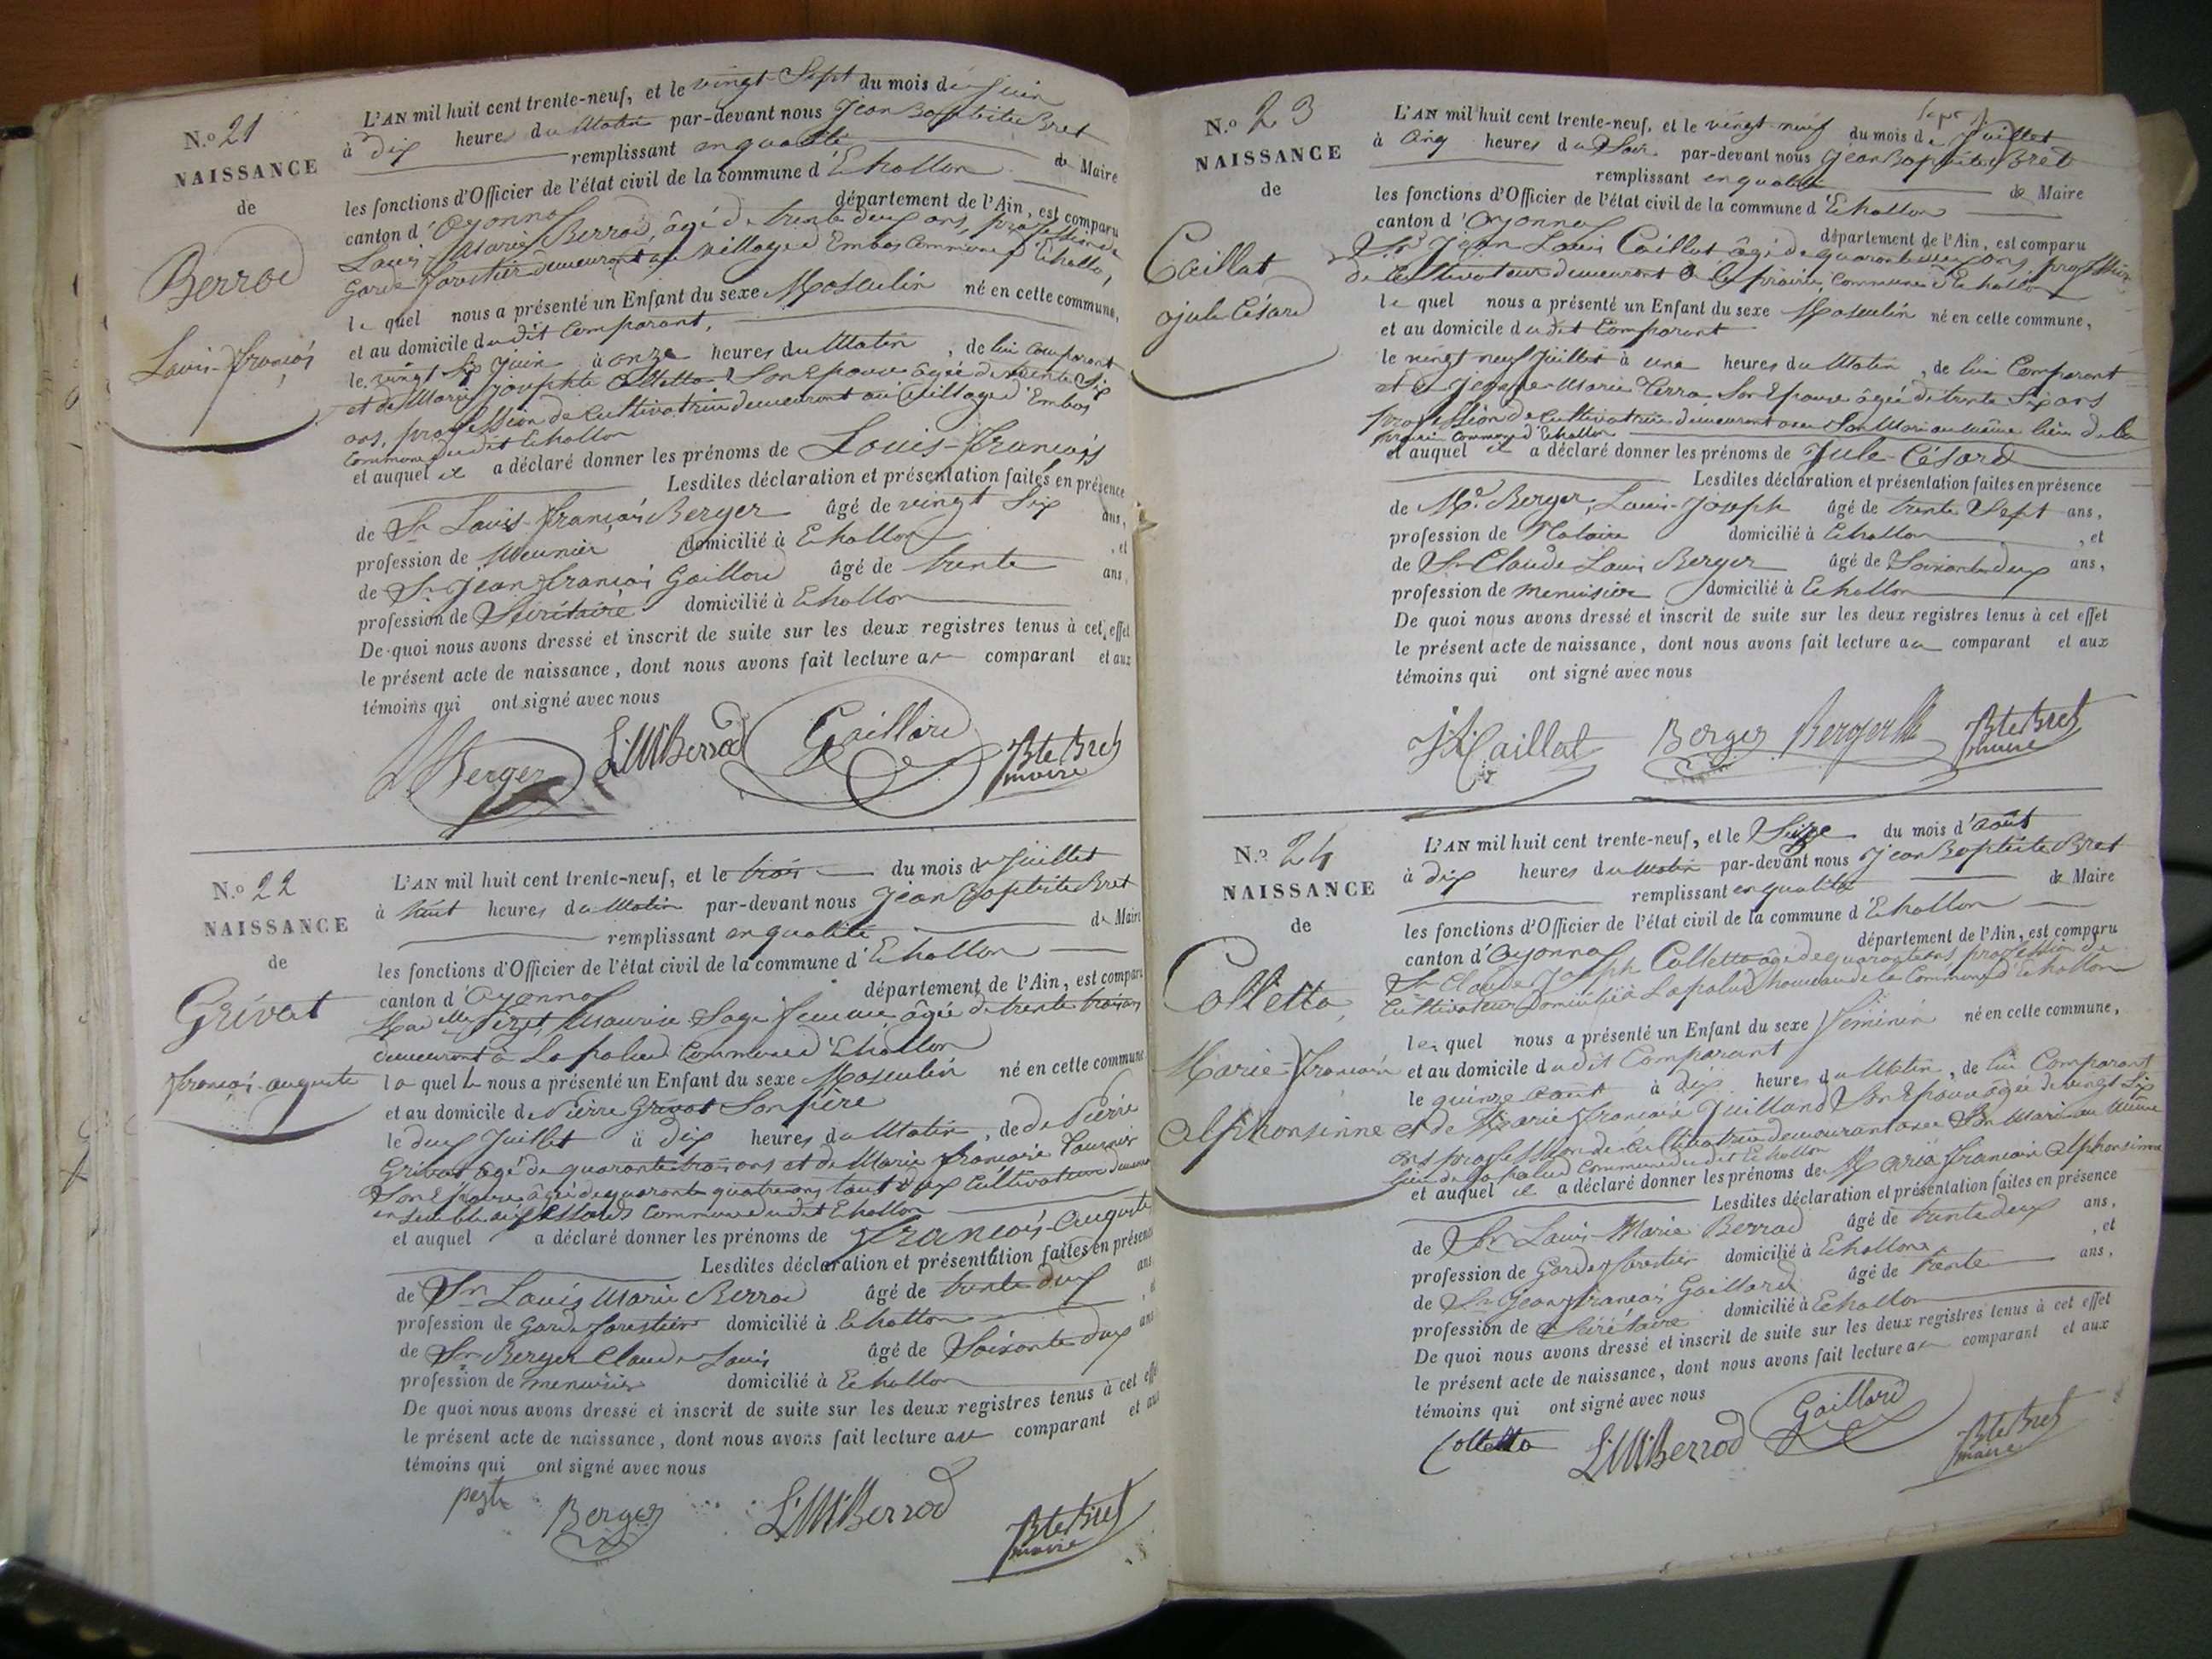 N.o 21
NAISSANCE
de
Berrod
Louis-françois
L'AN mil huit cent trente-neuf, et le vingt-Sept du mois de Juin
à dix heures du Matin par-devant nous Jean Baptiste Bret
remplissant en qualité de Maire
les fonctions d'Officier de l'état civil de la commune d'Echallon
canton d'Oyonnax département de l'Ain, est comparu
Louis-Marie Berrod, âgé de trente deux ans, profession de
Garde forestier demeurant au village d'Embos Commune d'Echallon,
le quel nous a présenté un Enfant du sexe Masculin né en cette commune,
et au domicile du dit Comparant,
le vingt Six Juin à onze heures du Matin, de lui Comparant
et de Marie Josephte Colletta Son Epouse âgée de trente Six
ans, profession de Cultivatrice demeurant au village d'Embos
Commune du dit Echallon
et auquel il a déclaré donner les prénoms de Louis-François
Lesdites déclaration et présentation faites en présence
de Sr Louis-françois Berger âgé de vingt Six ans,
profession de Meunier domicilié à Echallon, et
de Sr Jean françois Gaillard âgé de trente ans,
profession de Sécrétaire domicilié à Echallon
De quoi nous avons dressé et inscrit de suite sur les deux registres tenus à cet effet
le présent acte de naissance, dont nous avons fait lecture au comparant et aux
témoins qui ont signé avec nous
Berger L M Berrod Gaillard Bte Bret
maire
N.o 22
NAISSANCE
de
Grivat
françois-auguste
L'AN mil huit cent trente-neuf, et le trois du mois de Juillet
à huit heures du Matin par-devant nous Jean Baptiste Bret
remplissant en qualité de Maire
les fonctions d'Officier de l'état civil de la commune d'Echallon
canton d'Oyonnax département de l'Ain, est comparu
Maurice Sage femme, âgée de trente trois ans
demeurant à Lapalud Commune d'Echallon
la quelle nous a présenté un Enfant du sexe Masculin né en cette commune
et au domicile de Pierre Grivat Son père
le deux Juillet à dix heures du Matin, de Pierre
Grivat âgé de quarante trois ans et de Marie françoise Tournier
Son Epouse âgée de quarante quatre ans tout deux Cultivateurs
ensemble Commune du dit Echallon
et auquel a déclaré donner les prénoms de François-Auguste
Lesdites déclaration et présentation faites en présence
de Sr Louis Marie Berrod âgé de trente deux ans
profession de Garde forestier domicilié à Echallon
de Sr Berger Claude Louis âgé de Soixante deux ans
profession de menuisier domicilié à Echallon
De quoi nous avons dressé et inscrit de suite sur les deux registres tenus à cet effet
le présent acte de naissance, dont nous avons fait lecture au comparant et aux
témoins qui ont signé avec nous
Berger L M Berrod Bte Bret
maire
N.o 23
NAISSANCE
de
Caillat
Jule César
L'AN mil huit cent trente-neuf, et le vingt-neuf du mois de Juillet
à Cinq heures du Soir par-devant nous Jean Baptiste Bret
remplissant en qualité de Maire
les fonctions d'Officier de l'état civil de la commune d'Echallon
canton d'Oyonnax département de l'Ain, est comparu
Sr Jean Louis Caillat âgé de quarante deux ans, profession
de Cultivateur demeurant à la prairie, Commune d'Echallon
le quel nous a présenté un Enfant du sexe Masculin né en cette commune,
et au domicile du dit Comparant
le vingt neuf Juillet à une heures du Matin, de lui Comparant
et de Marie Son Epouse âgée de trente Six ans
profession de Cultivatrice demeurant avec Son Mari au même lieu de la
prairie Commune d'Echallon
et auquel il a déclaré donner les prénoms de Jule-César
Lesdites déclaration et présentation faites en présence
de Me. Berger, Louis-Joseph âgé de trente Sept ans,
profession de Notaire domicilié à Echallon, et
de Sr Claude Louis Berger âgé de Soixante deux ans,
profession de menuisier domicilié à Echallon
De quoi nous avons dressé et inscrit de suite sur les deux registres tenus à cet effet
le présent acte de naissance, dont nous avons fait lecture au comparant et aux
témoins qui ont signé avec nous
J L Caillat Berger Berger Bte Bret
maire
N.o 24
NAISSANCE
de
Colletta
Marie-françoise
Alphonsinne
L'AN mil huit cent trente-neuf, et le Seize du mois d'Août
à dix heures du Matin par-devant nous Jean Baptiste Bret
remplissant en qualité de Maire
les fonctions d'Officier de l'état civil de la commune d'Echallon
canton d'Oyonnax département de l'Ain, est comparu
Sr Claude Joseph Colletta âgé de quarante ans, profession de
Cultivateur Domicilié à Lapalud hameau de la Commune d'Echallon
le quel nous a présenté un Enfant du sexe Féminin né en cette commune,
et au domicile du dit Comparant
le quinze Août à dix heures du Matin, de lui Comparant
et de Marie françoise Juilland Son Epouse âgée de vingt Six
ans profession de Cultivatrice demeurant avec Son Mari au Même
lieu de Lapalud Commune du dit Echallon
et auquel il a déclaré donner les prénoms de Maria françoise Alphonsinne
Lesdites déclaration et présentation faites en présence
de Sr Louis-Marie Berrod âgé de trente deux ans,
profession de Garde forestier domicilié à Echallon, et
de Sr Jean françois Gaillard âgé de trente ans,
profession de Sécrétaire domicilié à Echallon
De quoi nous avons dressé et inscrit de suite sur les deux registres tenus à cet effet
le présent acte de naissance, dont nous avons fait lecture au comparant et aux
témoins qui ont signé avec nous
Colletta L M Berrod Gaillard Bte Bret
maire